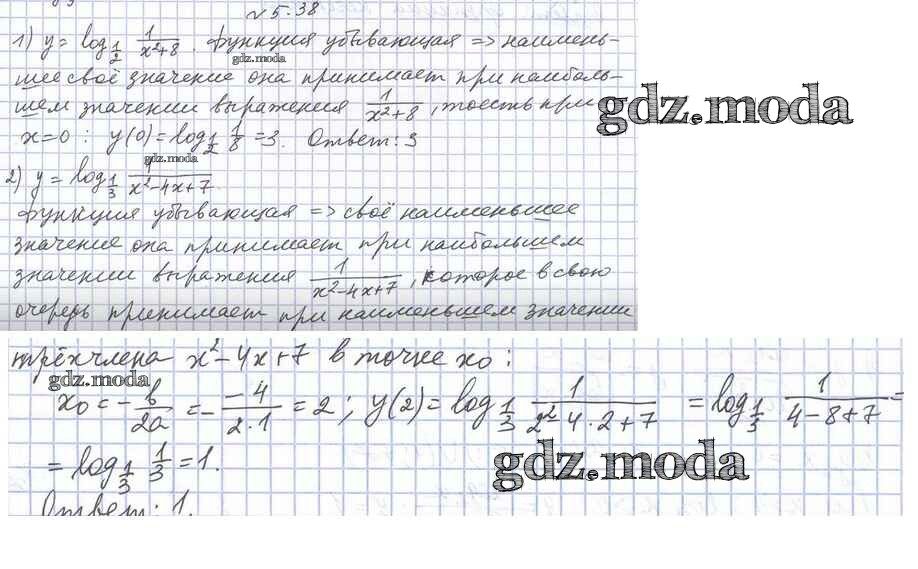 № 5.38
1) y = log_{1/2} 1/(x²+8). Функция убывающая => наимень-
gdz.moda
шее своё значение она принимает при наиболь-
шем значении выражения 1/(x²+8), тоесть при
gdz.moda
x=0 : y(0) = log_{1/2} 1/8 = 3. Ответ: 3
gdz.moda
2) y = log_{1/3} 1/(x²-4x+7).
Функция убывающая => своё наименьшее
значение она принимает при наибольшем
значении выражения 1/(x²-4x+7), которое в свою
очередь принимает при наименьшем значении
трёхчлена x²-4x+7 в точке x₀ :
gdz.moda
x₀ = -b/2a = - -4/(2·1) = 2 ; y(2) = log_{1/3} 1/(2²-4·2+7) = log_{1/3} 1/(4-8+7) =
= log_{1/3} 1/3 = 1.
gdz.moda
Ответ: 1.